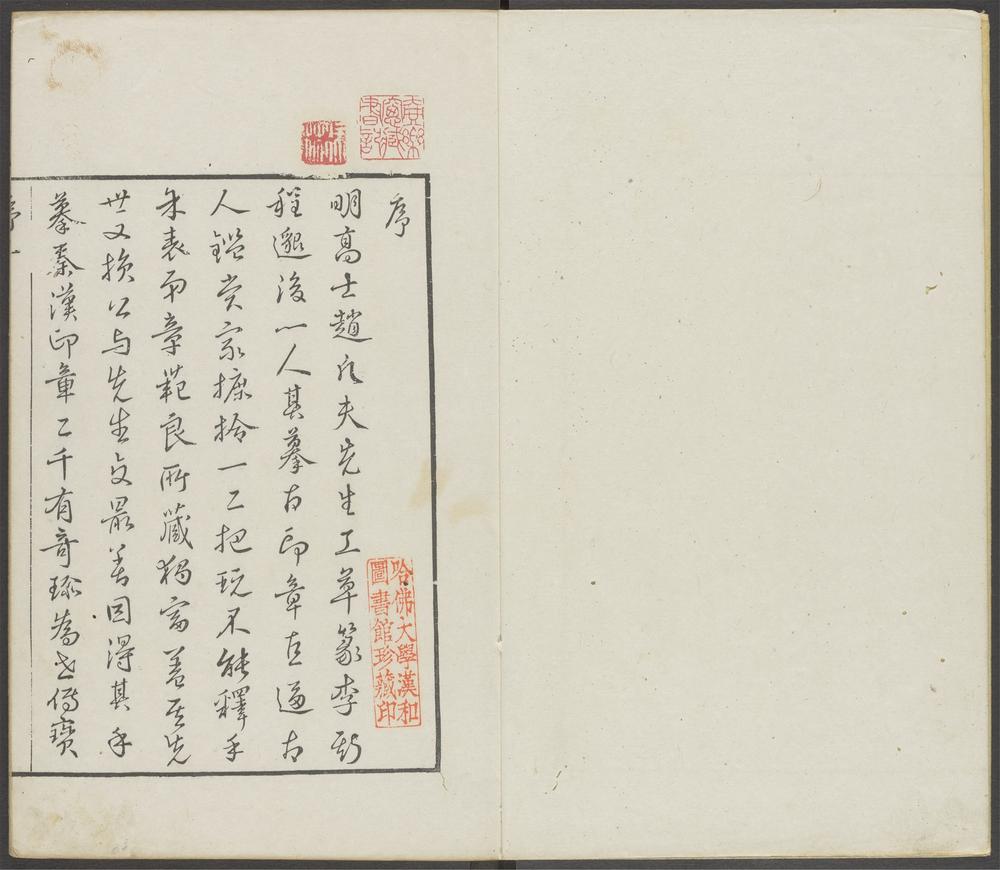 序
明高士趙凡夫先生工草篆李斯
程邈後一人其摹古印章直逼古
人鑑賞家摭拾一二把玩不能釋手
表弟章範良所藏獨富蓋其先
世又損公与先生交最善因得其手
摹秦漢印章二千有奇珍為世傳寶
序一
哈佛大學漢和
圖書館珍藏印